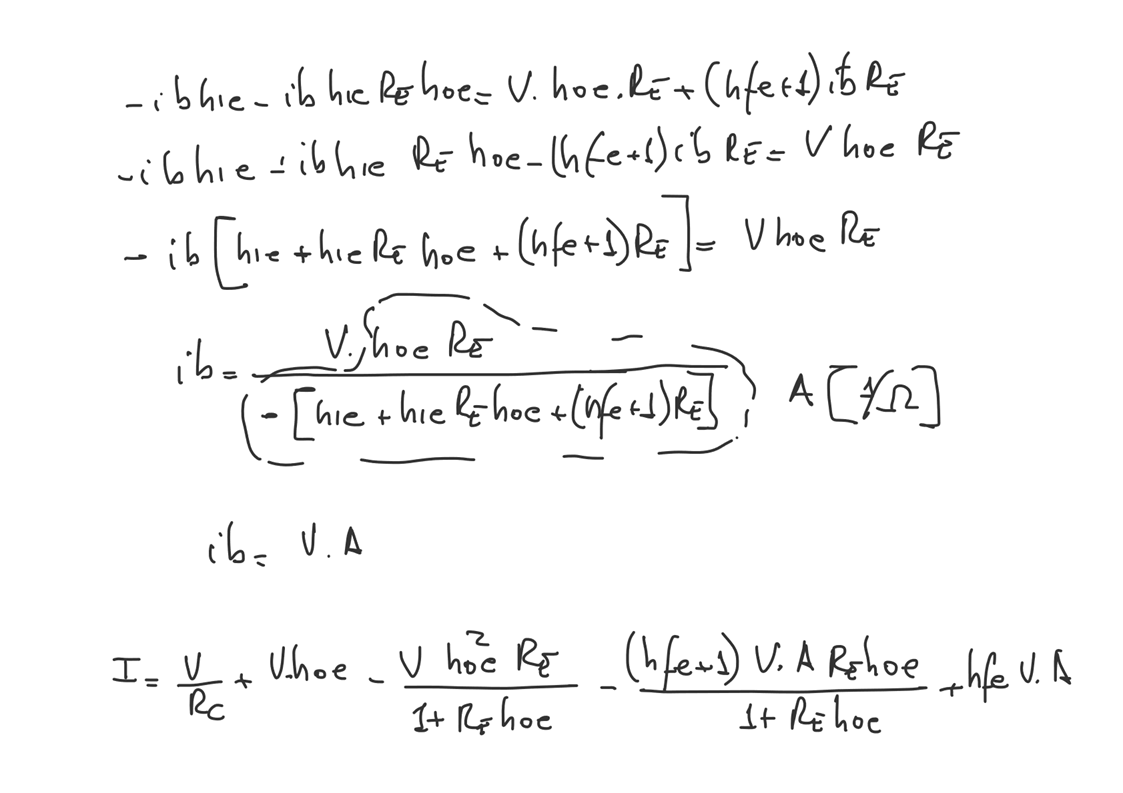 -ib hie - ib hie RE hoe = V. hoe. RE + (hfe+1) ib RE
-ib hie - ib hie RE hoe - (hfe+1) ib RE = V hoe RE
- ib [hie + hie RE hoe + (hfe+1) RE] = V hoe RE
ib = V. hoe RE / -[hie + hie RE hoe + (hfe+1) RE] A [1/Ω]
ib = V. A
I = V/RC + V.hoe - V hoe² RE / (1 + RE hoe) - (hfe+1) V. A RE hoe / (1 + RE hoe) + hfe V. A